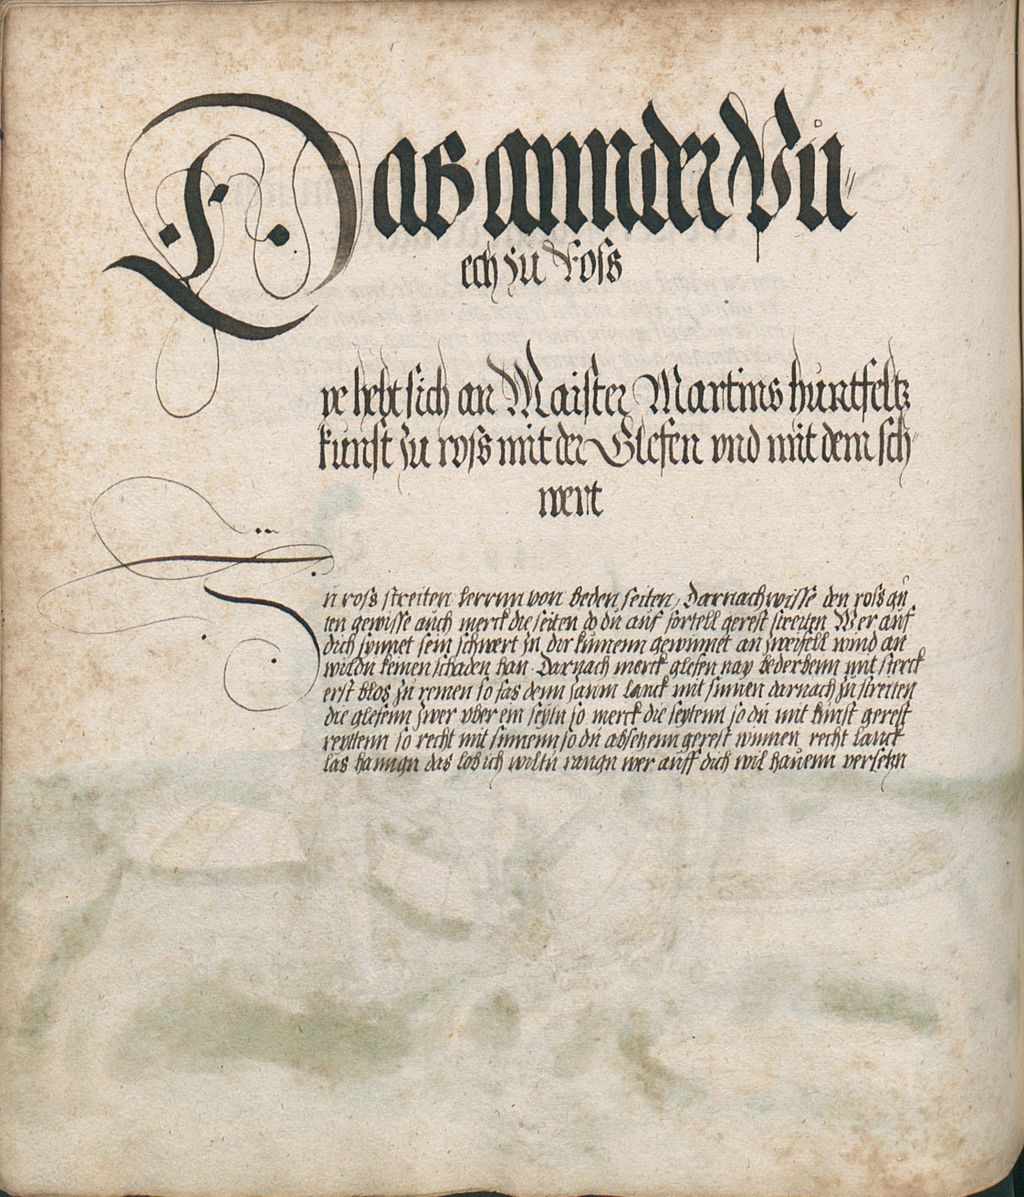 Das annder Bu
ech zu Ross
ye hebt sich an Maister Martins hundtfeltz
kunst zu ross mit der Glefen vnd mit dem sch
wert
Zu ross streiten kerrnn von beden seiten Darnach wisse den ross gu
ten gewisse auch merck die seiten so du auf fortell gerest streiten Wer auf
dich synnet sein schwert zu dir kumenn gewinnet an zweifell wind an
wildu keinen schaden han Darnach merck glefen nay bederbenn mit sterck
erst blos zu rennen so fas denn sawm lanck mit sinnen darnach zu streiten
die glefenn zwer vber ein seyten so merck die seytenn so du mit kunst gerest
reyttenn so recht mit sinnenn so du absetzenn gerest winnen recht lanck
las hanngn das lob ich wiltu rangn wer auff dich wil hauenn versetzn